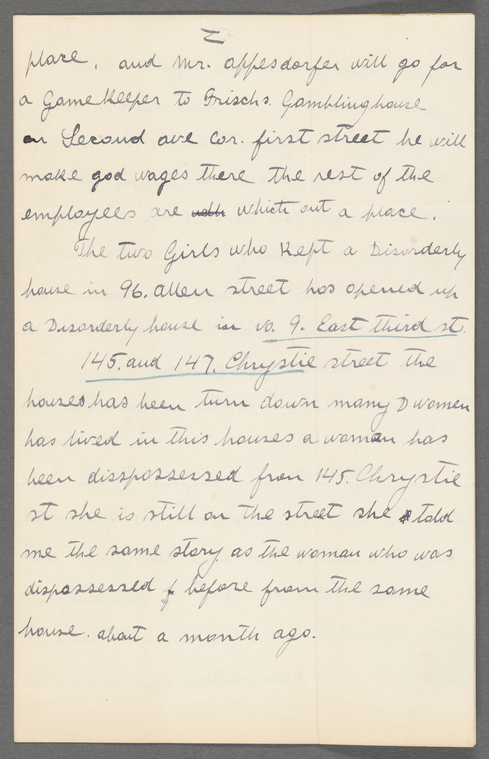 2
place. and Mr. Appesdorfer will go for
a Game Keeper to Frischs. Gamblinghouse
on Second ave cor. first street he will
make god wages there the rest of the
employees are which out a place.
The two Girls who Kept a Disorderly
house in 96. Allen street has opened up
a Disorderly house in No. 9. East third st.
145. and 147. Chrystie street the
houses has been turn down many D women
has lived in this houses a woman has
been disspossessed from 145. Chrystie
st she is still on the street she told
me the same story as the woman who was
dispossessed before from the same
house. about a month ago.